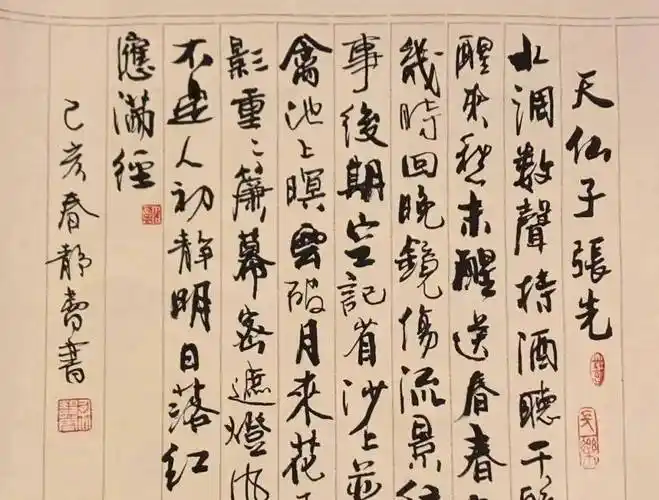 天仙子張先
水調數聲持酒聽午
醒來愁未醒送春春
幾時回晚鏡傷流景
事後期空記省沙上並
禽池上暝雲破月來花
影重〻簾幕密遮燈風
不定人初靜明日落紅
應滿徑
己亥春靜書